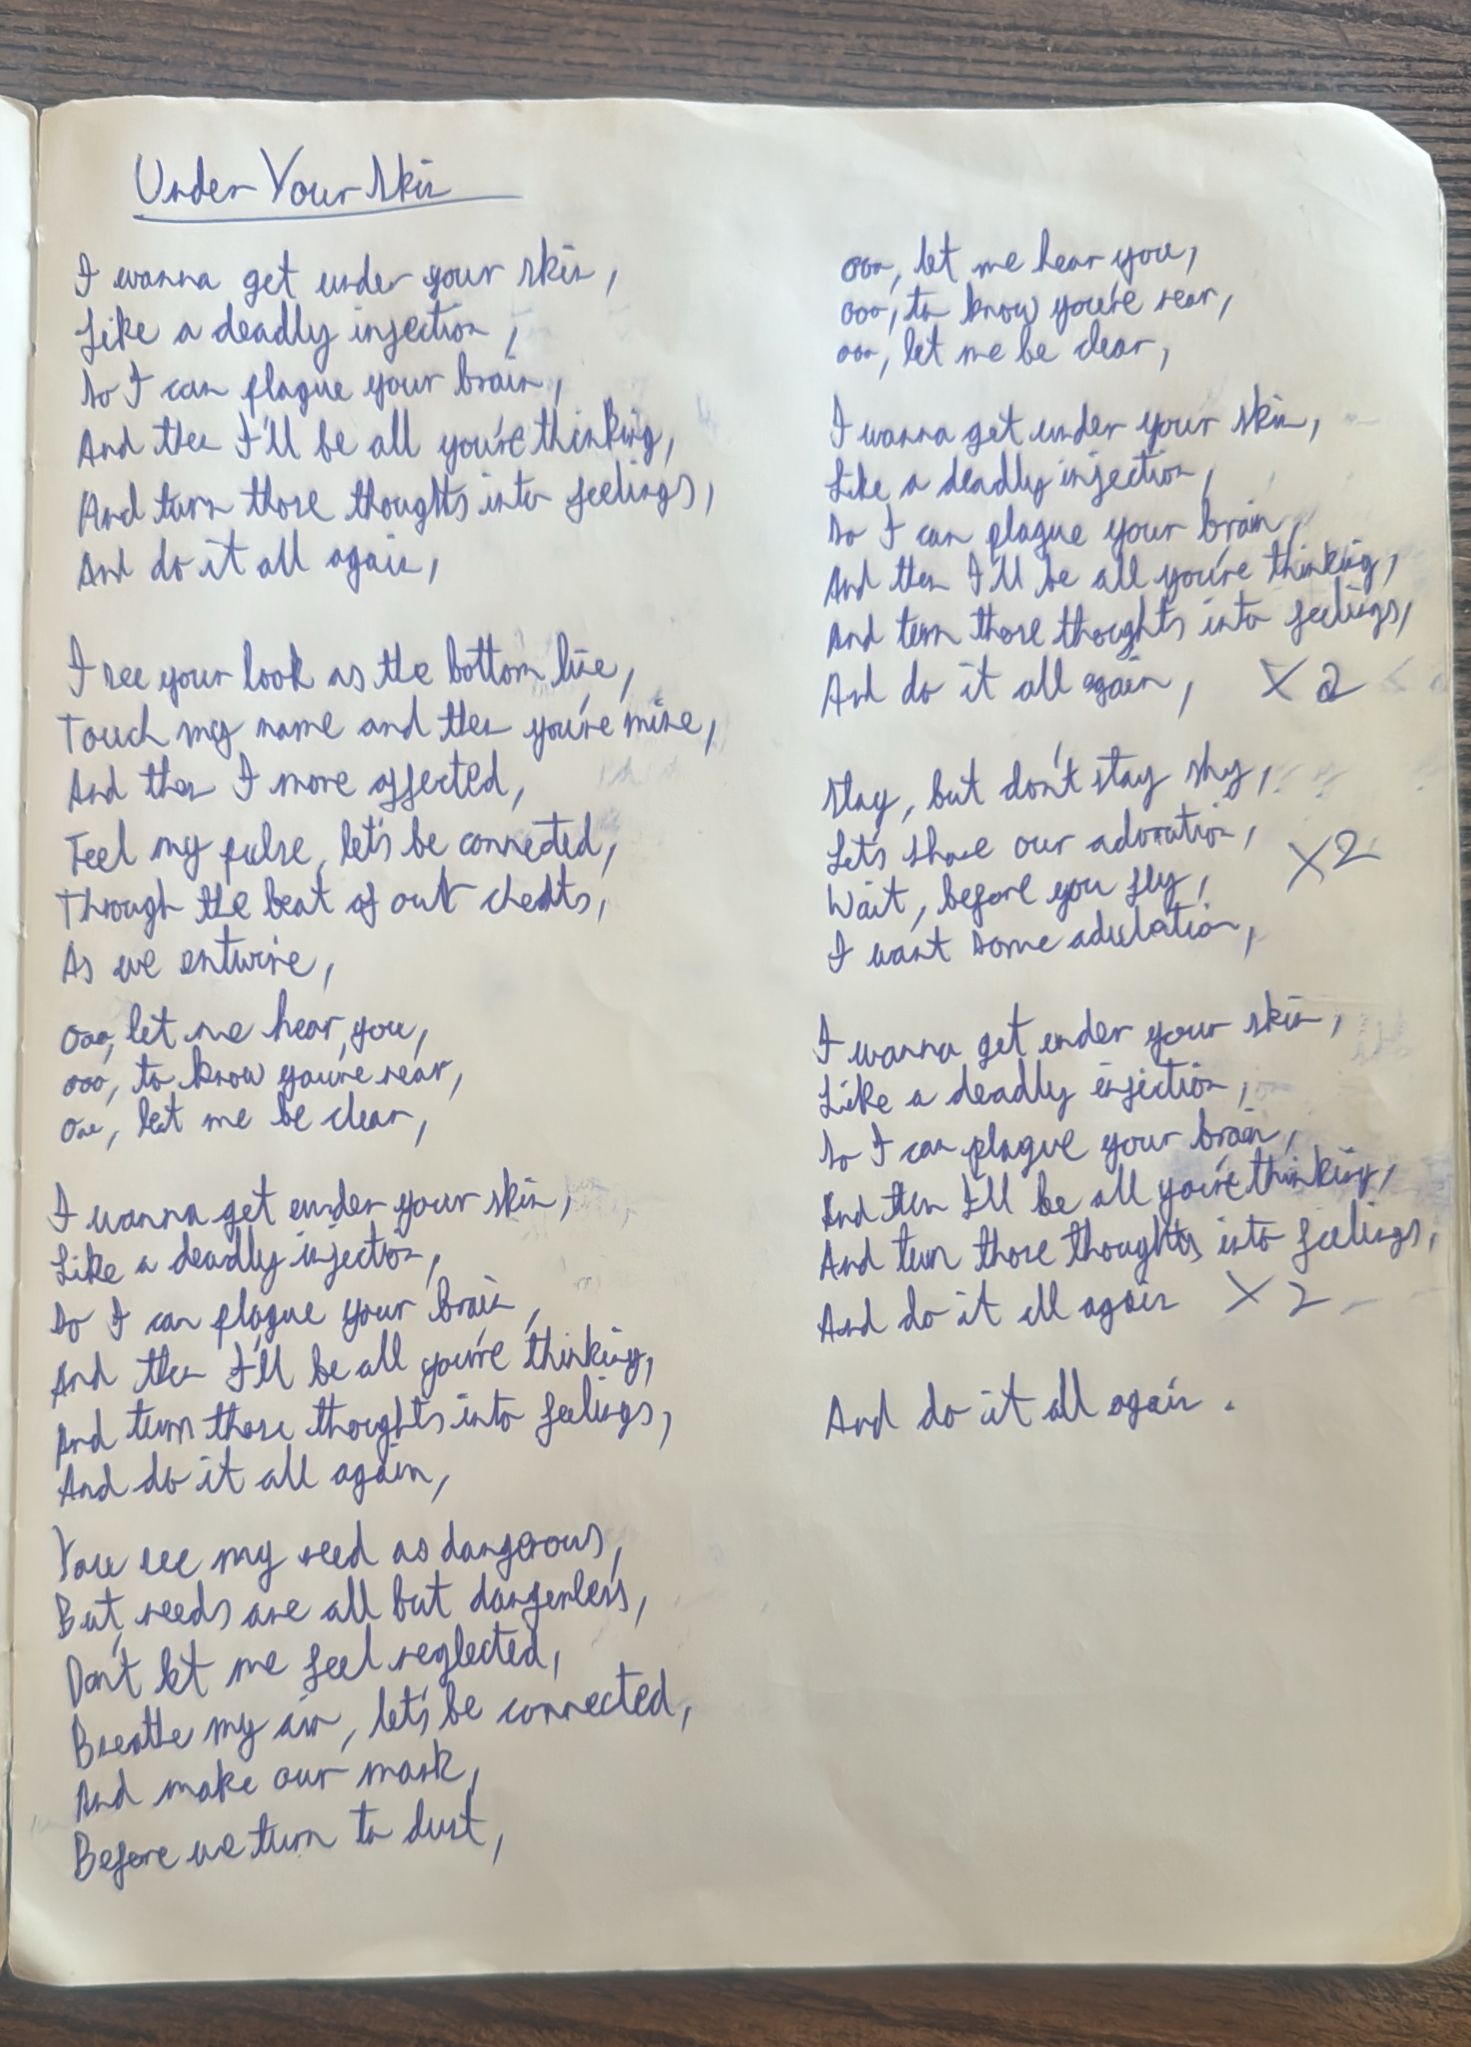 Under Your Skin
I wanna get under your skin,
Like a deadly injection,
So I can plague your brain,
And then I'll be all you're thinking,
And turn those thoughts into feelings,
And do it all again,
I see your look as the bottom line,
Touch my name and then you're mine,
And then I more affected,
Feel my pulse, let's be connected,
Through the beat of out chests,
As we entwine,
Ooo, let me hear you,
ooo, to know you're near,
ooo, let me be clear,
I wanna get under your skin,
Like a deadly injection,
So I can plague your brain,
And then I'll be all you're thinking,
And turn those thoughts into feelings,
And do it all again,
You see my need as dangerous,
But, needs are all but dangerless,
Don't let me feel neglected,
Breathe my air, let's be connected,
And make our mark,
Before we turn to dust,
ooo, let me hear you,
ooo, to know you're near,
ooo, let me be clear,
I wanna get under your skin,
Like a deadly injection,
So I can plague your brain,
And then I'll be all you're thinking,
And turn those thoughts into feelings,
And do it all again, X2
Stay, but don't stay shy,
Let's share our adoration,
X2
Wait, before you fly,
I want some adulation,
I wanna get under your skin,
Like a deadly injection,
So I can plague your brain,
And then I'll be all you're thinking,
And turn those thoughts into feelings,
And do it all again X2
And do it all again.